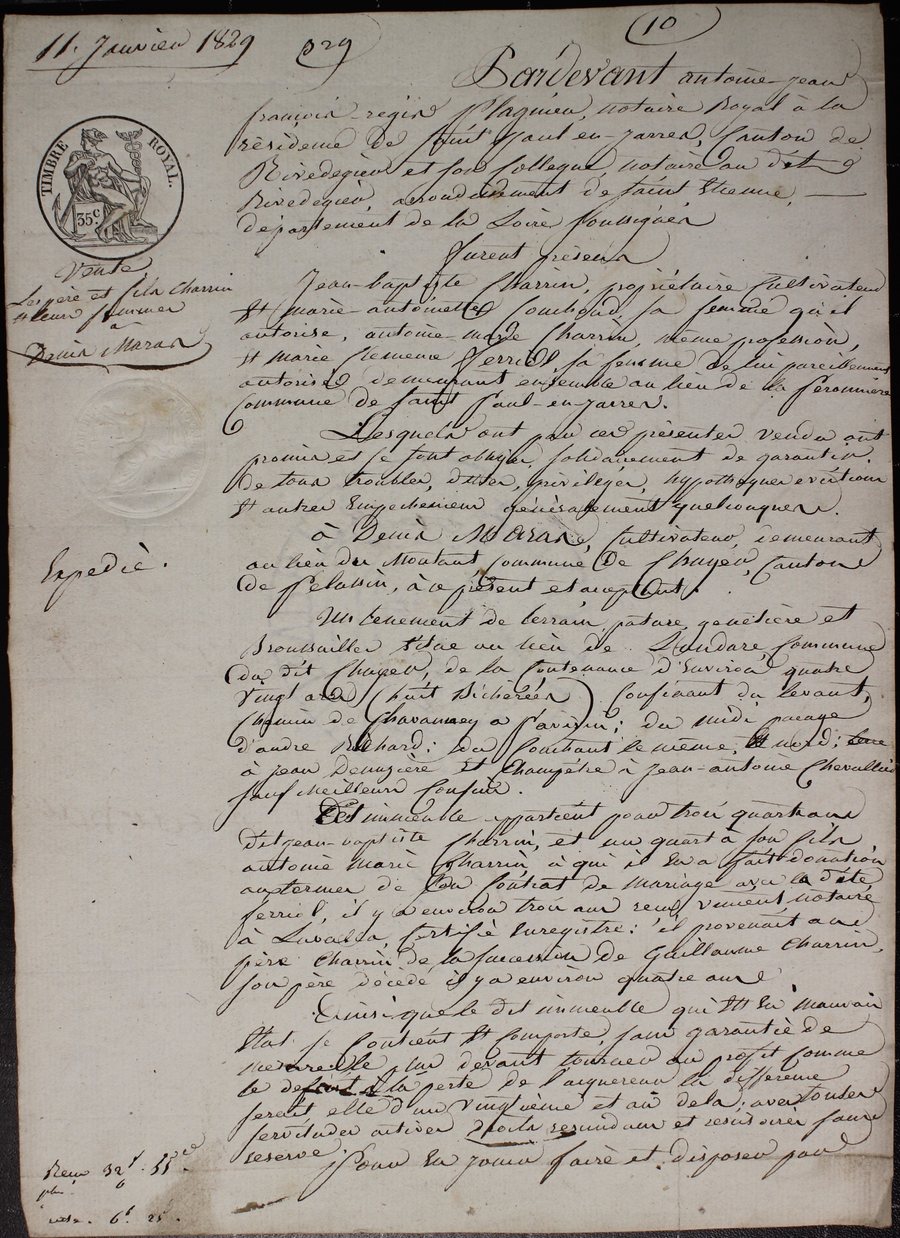 11. Janvier 1829
29
10
TIMBRE ROYAL.
35 c
Vente
Les père et fils Charrin
et leurs femmes
a
Denis Maras
Expedié.
Pardevant antoine-Jean
françois-regis notaire Royal à la
résidence de Saint Paul-en-Jarrez, Canton de
Rivedegier et son Collegue, notaire au dit
Rivedegier, arrondissement de Saint Etienne,
département de la Loire soussignés
furent présens
Jean-baptiste Charrin, propriétaire Cultivateur
Et marie-antoinette sa femme qu'il
autorise, antoine-marie Charrin, même profession,
Et marie Clemence Ferriol, sa femme de lui pareillement
autorisée demeurant ensemble au lieu de la Peronniere
Commune de Saint Paul-en-Jarrez.
Lesquels ont par ces présentes vendu ont
promis et se sont obligés solidairement de garantir
de tous troubles, dettes, privilèges, hypothèques evictions
Et autres Empechemens généralement quelconques.
à Denis Maras, Cultivateur, demeurant
au lieu du Montant Commune de Chuyer, Canton
de Pelussin, à ce présent et acceptant.
Un tenement de terrain, pature, genetière et
Broussailles situé au lieu de Commune
du dit Chuyer, de la Contenance d'Environ quatre
vingt ares (huit Bicherées) Confinant du levant,
Chemin de Chavannay a du midi pacage
d'andre Richard; du Couchant le même, Et nord; terre
à jean et Champêtre à Jean-antoine Chevallier
sauf meilleurs Confins.
Cet immeuble appartient pour trois quarts au
dit jean-baptiste Charrin, et un quart à son fils
antoine marie Charrin, à qui il en a fait donation
au termes de son Contrat de mariage avec la dite
ferriol, il y a environ trois ans reçu notaire
à Certifié Enregistré: il provenait au
père Charrin de la succession de Guillaume Charrin,
son père décédé il y a environ quatre ans
Ainsi que le dit immeuble qui Est En mauvais
Etat se Contient Et Comporte, sans garantie de
mesure le plus devant tourner au profit comme
le defaut à la perte de l'aquereur la difference
serait elle d'un vingtième et au dela, avec toutes
servitudes actives droits rescindans et rescisoires sans
reserve.
Pour En jouir faire et disposer par
Reçu 32 f. 55 c
plus
6 f. 25 c.